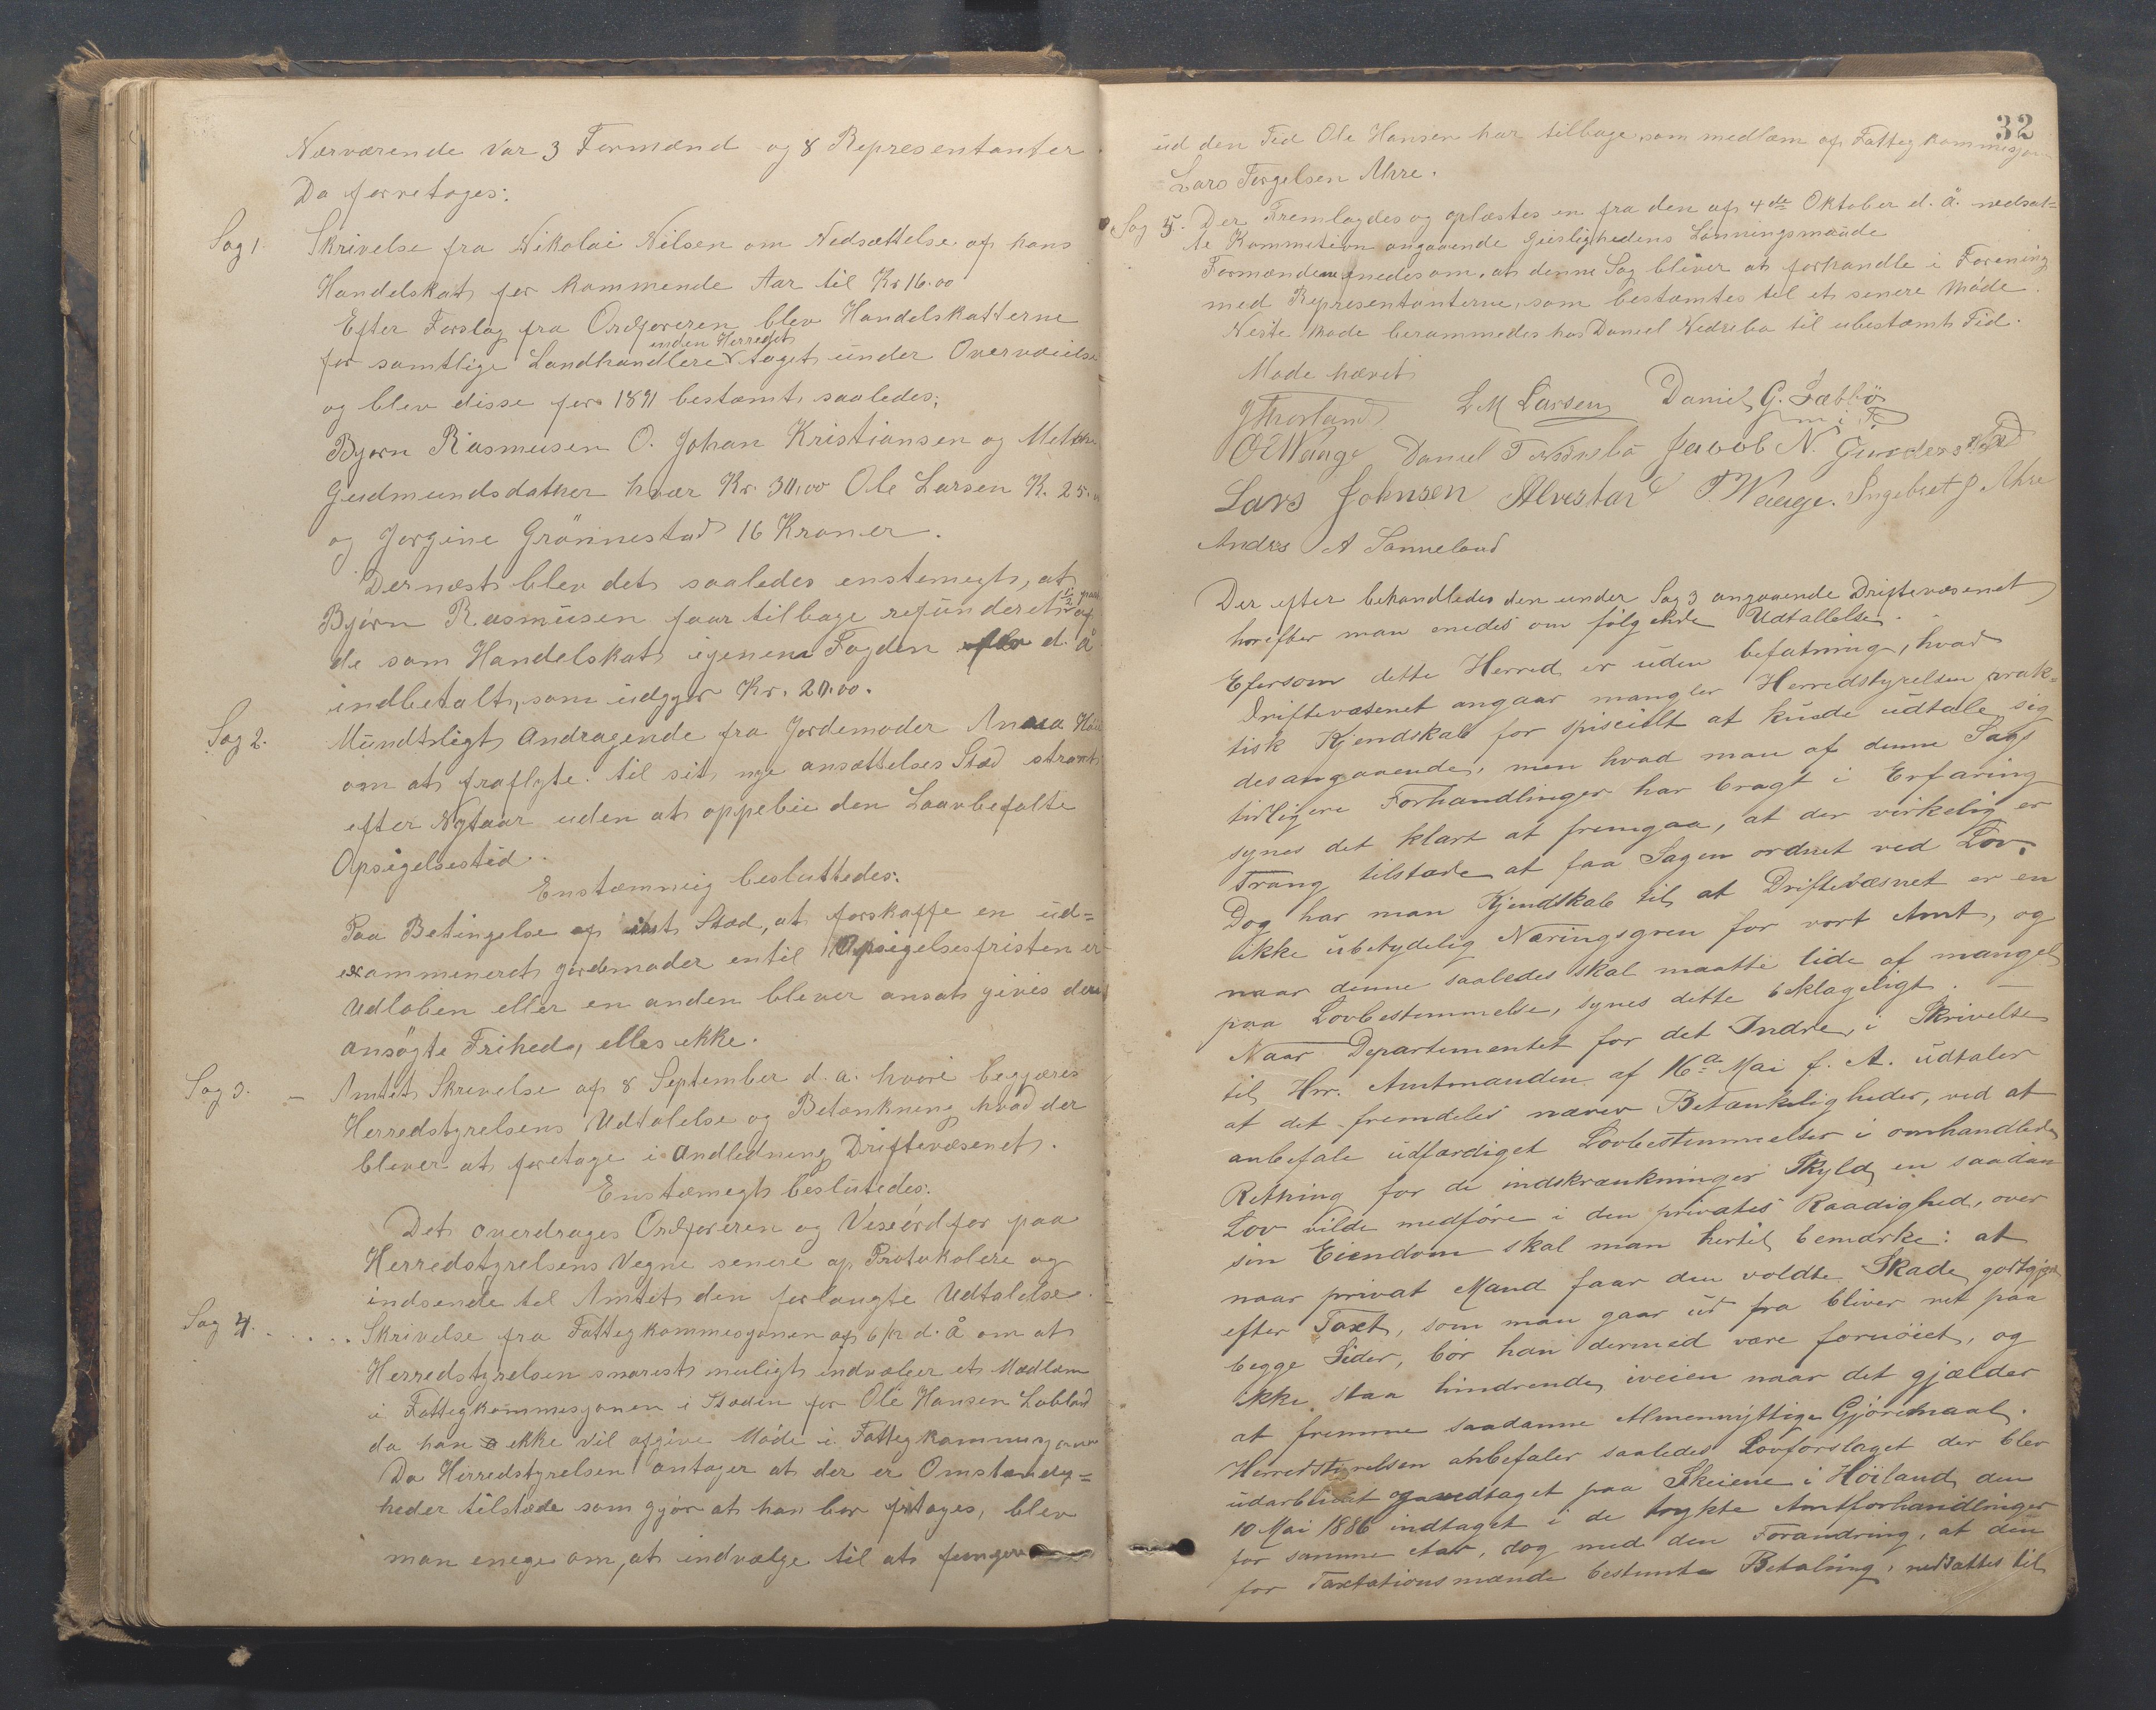 Nærværende var 3 Formænd og 8 Representanter.
Da forretoges:
Sag 1. Skrivelse fra Nikolai Nilsen om Nedsættelse af hans
Handelskat for kommende Aar til Kr 16.00
Efter Forslag fra Ordføreren blev Handelskatterne
for samtlige Landhandlere inden Herredet taget under Overveielse
og blev disse for 1891 bestemt saaledes;
Bjørn Rasmusen O. Johan Kristiansen og
Gudmundsdatter hver Kr. 30,00 Ole Larsen K. 25.
og Jorgine Grönnestad 16 Kroner.
Dernæst blev det saaledes enstemegt, at
Bjørn Rasmusen faar tilbage refunderet 1/2 part af
de som Handelskat igenem Fogden d. å
indbetalt, som udgjør Kr. 20.00.
Sag 2. Mundtligt Andragende fra Jordemoder Anna
om at fraflyte til sit nye ansættelses Sted stramt
efter Nytaar uden at oppebie den Laavbefalte
Opsigelsestid.
Enstæmmig besluttedes:
Paa Betingelse af Sted, at forskaffe en ud-
exammeneret jordemoder entil Opsigelsesfristen er
Udløben eller en anden blever ansat gives den
ansøgte Frihed, elles ekke.
Sag 3. - Amtet Skrivelse af 8 September d. a. hvori begjæres
Herredstyrelsens Udtalelse og Betænkning hvad der
blever at foretage i Andledning Driftevæsenet.
Enstæmegt beslutedes:
Det overdrages Ordføreren og Viseordfør paa
Herredstyrelsens Vegne senere at Protokolere og
indsende til Amtet den forlangte Udtalelse.
Sag 4. ..... Skrivelse fra Fattegkommesjonen af 6/12 d. Å om at
Herredstyrelsen snarest muligt indvælger et Medlem
i Fattegkommesjonen i Steden for Ole Hansen
da han ekke vil afgive Møde i Fattegkommesjonen
Da Herredstyrelsen antager at der er Omstændig-
heder tilstede som gjør at han bør fritages, blev
man enege om, at indvælge til at fungere
32
ud den Tid Ole Hansen har tilbage som medlæm af Fattegkommesjon
Lars Torgelsen Ahre.
Sag 5. Der Fremlagdes og oplæstes en fra den af 4de Oktober d. å. nedsat-
te Kommition angaaende Geislighedens Lønningsmaade
Formændene enedes om, at denne Sag bliver at forhandle i Forening
med Representanterne, som bestemtes til et senere Møde.
Neste Møde berammedes hos Daniel Nedrebø til ubestemt Tid.
Møde hævet
J Thorland L M Larsen Daniel G. Sæbbö
m i P
O E Waage Daniel T Nedrebö Jacob N. Gundersstad
Lars Johnsen Alvestad T. Waage. Ingebret J. Ahre
Andrs A Sanneland
Der efter behandledes den under Sag 3 angaaende Driftevæsenet
horefter man enedes om følgende Udtallelse.
Efersom dette Herred er uden befatning, hvad
Driftevæsenet angaar mangler Herredstyrelsen prak-
tisk Kjendskab for spiscielt at kunde udtale sig
desangaaende, men hvad man af denne Sags
tirligere Forhandlinger har bragt i Erfaring
synes det klart at fremgaa, at der virkelig er
Trang tilstæde at faa Sagen ordnet ved Lov.
Dog har man Kjendskab til at Driftevæsnet er en
ikke ubetydelig Næringsgren for vort Amt, og
naar denne saaledes skal maatte lide af mangel
paa Lovbestemmelse, synes dette beklageligt. —
Naar Departementet for det Indre, i Skrivelse
til Hr. Amtmanden af 16de Mai f. A. udtaler
at det fremdeles nærer Betænkeligheder, ved at
anbefale udfærdiget Lovbestemmelser i omhandlede
Retning for de indskrænkninger Skyld en saadan
Lov vilde medføre i den privates Raadighed, over
sin Eiendom skal man hertil bemærke: at
naar privat Mand faar den voldte Skade godtgjort
efter Taxt, som man gaar ud fra bliver ret paa
begge Sider, bör han dermed være fornöiet, og
ikke staa hindrende iveien naar det gjælder
at fremme saadanne Almennyttige Gjøremaal.
Herredstyrelsen anbefaler saaledes Lovforslaget der blev
udarbeidet og vedtaget paa Skeiene i Höiland den
10 Mai 1886 indtaget i de trykte Amtforhandlinger
for samme Aar, dog med den Forandring, at den
for Taxtationsmænde bestemte Betaling, nedsættes til